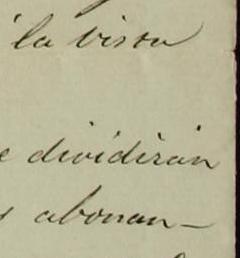 la bison
e dividirán
s abonan-